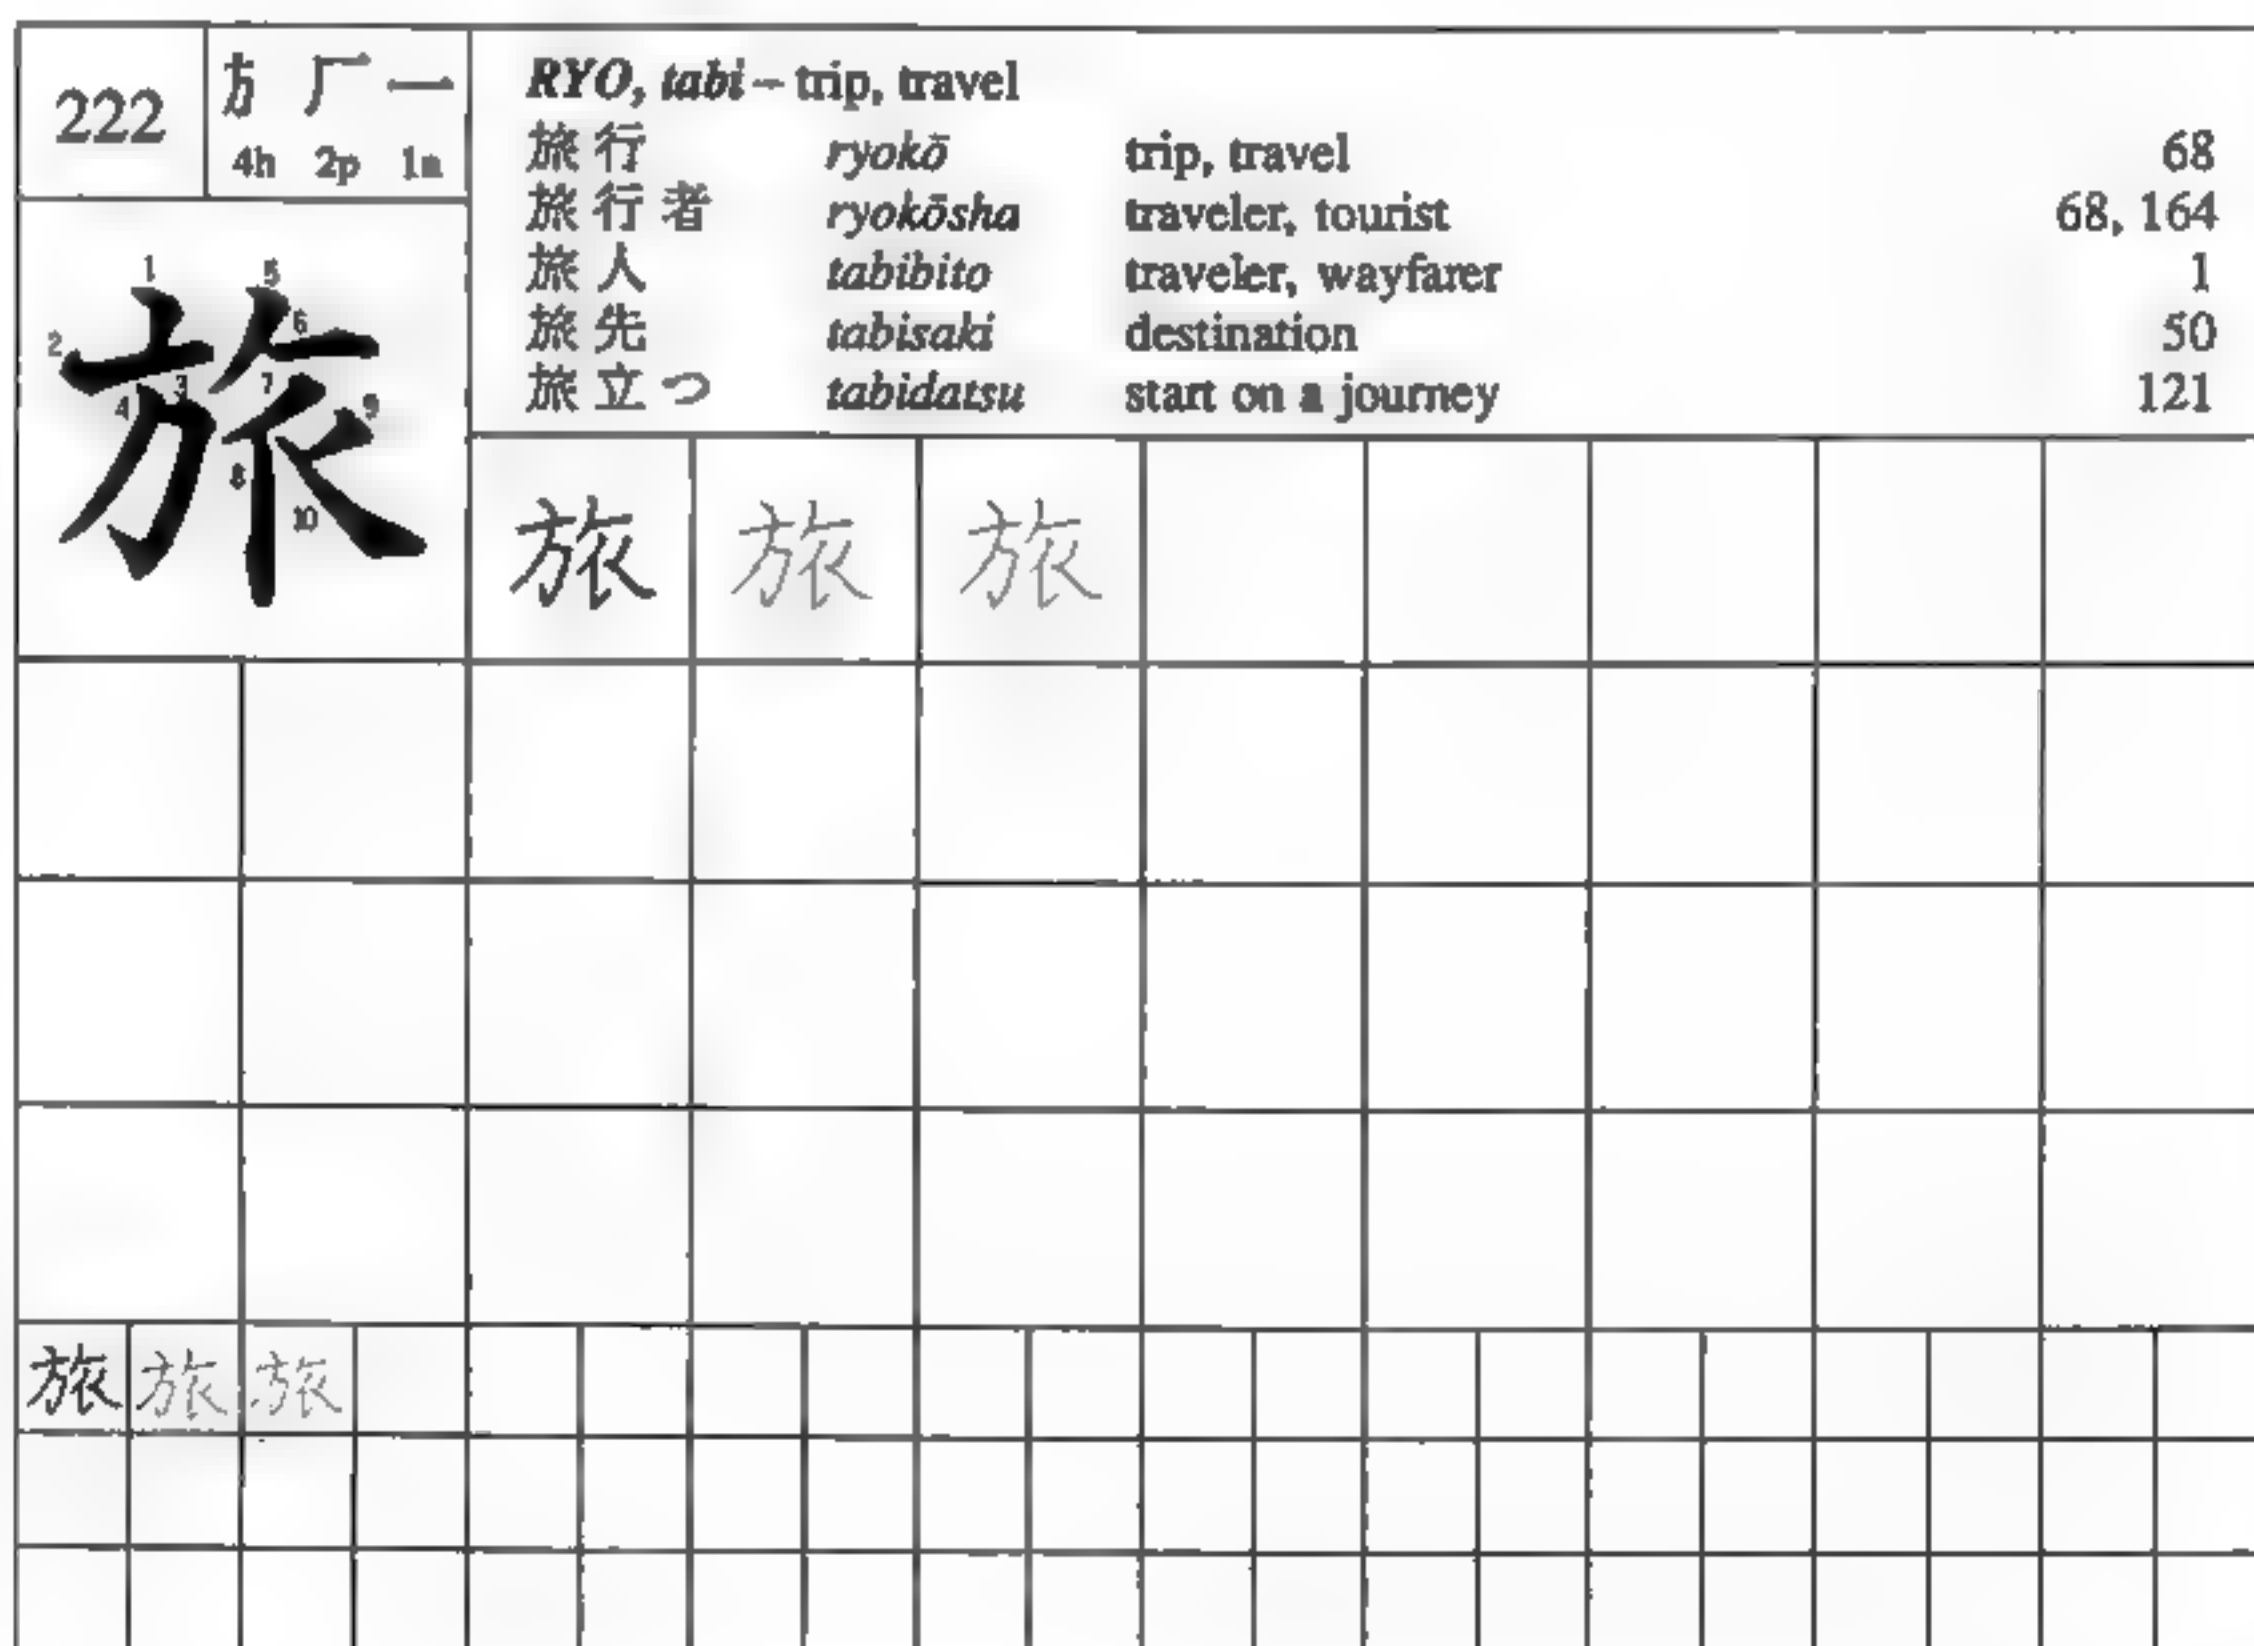 222
方 𠂆 一
4h 2p 1a
RYO, tabi – trip, travel
旅行 ryokō trip, travel 68
旅行者 ryokōsha traveler, tourist 68, 164
旅人 tabibito traveler, wayfarer 1
旅先 tabisaki destination 50
旅立つ tabidatsu start on a journey 121
旅
1 2 3 4 5 6 7 8 9 10
旅 旅 旅
旅 旅 旅